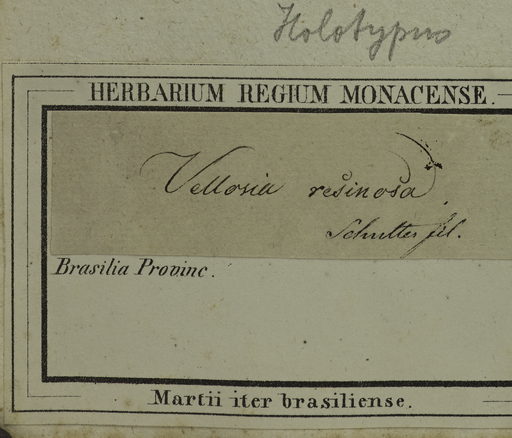 Holotypus
HERBARIUM REGIUM MONACENSE.
Vellosia resinosa
Schultes fil.
Brasilia Provinc.
Martii iter brasiliense.